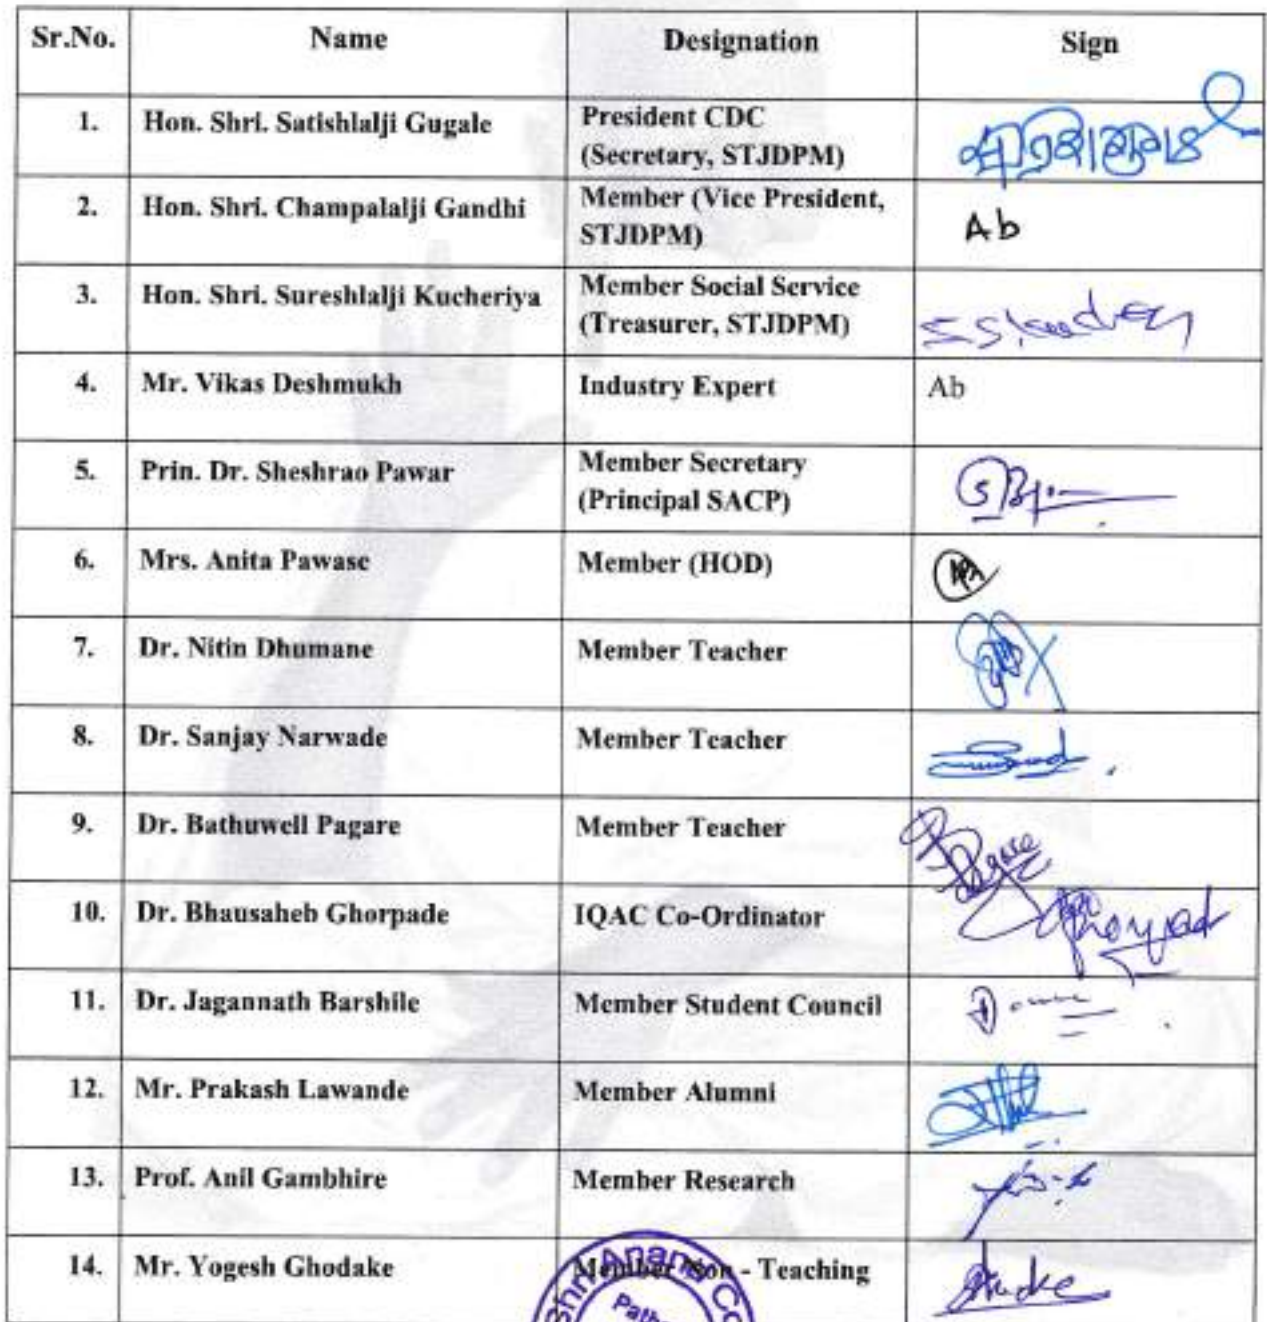 Sr.No. Name Designation Sign
1. Hon. Shri. Satishlalji Gugale President CDC
(Secretary, STJDPM)
2. Hon. Shri. Champalalji Gandhi Member (Vice President,
STJDPM) Ab
3. Hon. Shri. Sureshlalji Kucheriya Member Social Service
(Treasurer, STJDPM)
4. Mr. Vikas Deshmukh Industry Expert Ab
5. Prin. Dr. Sheshrao Pawar Member Secretary
(Principal SACP)
6. Mrs. Anita Pawase Member (HOD)
7. Dr. Nitin Dhumane Member Teacher
8. Dr. Sanjay Narwade Member Teacher
9. Dr. Bathuwell Pagare Member Teacher
10. Dr. Bhausaheb Ghorpade IQAC Co-Ordinator
11. Dr. Jagannath Barshile Member Student Council
12. Mr. Prakash Lawande Member Alumni
13. Prof. Anil Gambhire Member Research
14. Mr. Yogesh Ghodake Member Non - Teaching
Shri Anand Co
Path